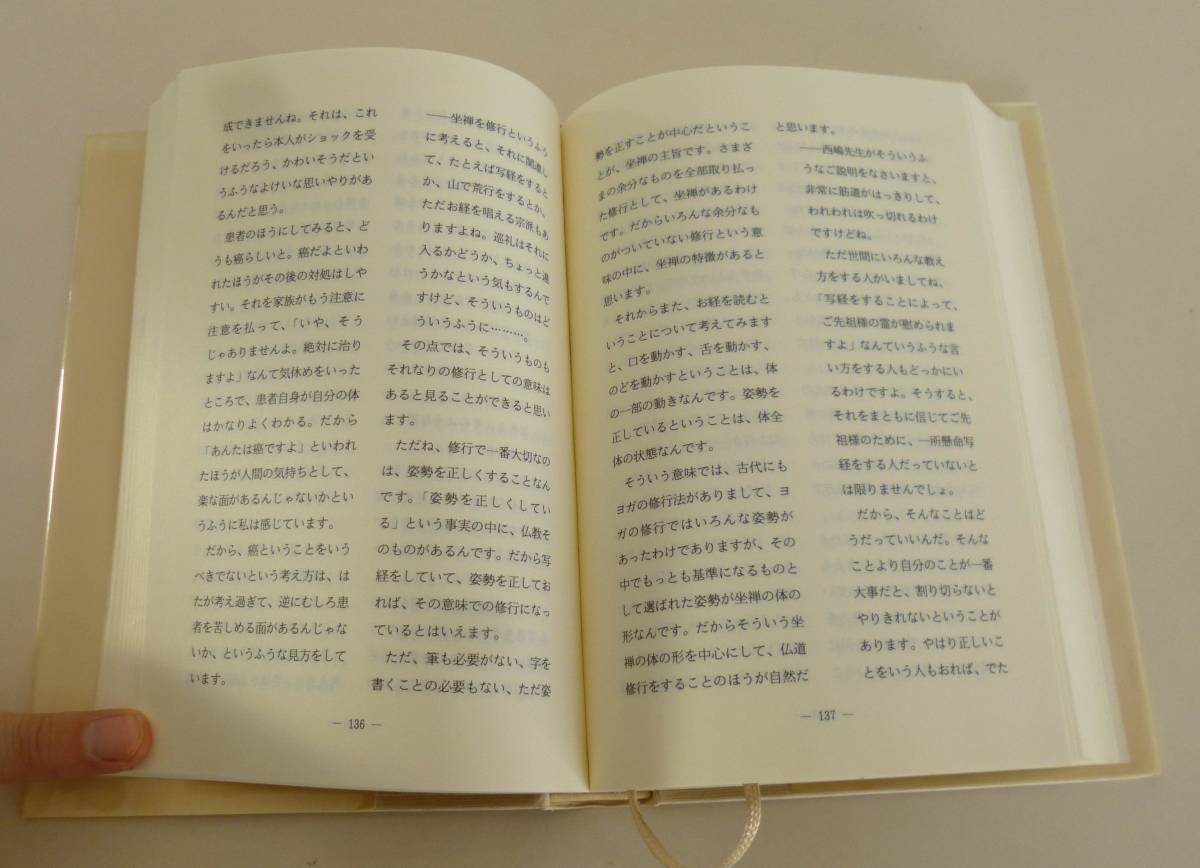 成できませんね。それは、これ
をいったら本人がショックを受
けるだろう、かわいそうだとい
うふうなよけいな思いやりがあ
るんだと思う。
患者のほうにしてみると、ど
うも癌らしいと。癌だよといわ
れたほうがその後の対処はしや
すい。それを家族がもう注意に
注意を払って、「いや、そう
じゃありませんよ。絶対に治り
ますよ」なんて気休めをいった
ところで、患者自身が自分の体
はかなりよくわかる。だから
「あんたは癌ですよ」といわれ
たほうが人間の気持ちとして、
楽な面があるんじゃないかとい
うふうに私は感じています。
だから、癌ということをいう
べきでないという考え方は、は
たが考え過ぎて、逆にむしろ患
者を苦しめる面があるんじゃな
いか、というふうな見方をして
います。
――坐禅を修行というふう
に考えると、それに関連し
て、たとえば写経をすると
か、山で荒行をするとか、
ただお経を唱える宗派もあ
りますよね。巡礼はそれに
入るかどうか、ちょっと違
うかなという気もするんで
すけど、そういうものはど
ういうふうに………。
その点では、そういうものも
それなりの修行としての意味は
あると見ることができると思い
ます。
ただね、修行で一番大切なの
は、姿勢を正しくすることなん
です。「姿勢を正しくしてい
る」という事実の中に、仏教そ
のものがあるんです。だから写
経をしていて、姿勢を正してお
れば、その意味での修行になっ
ているとはいえます。
ただ、筆も必要がない、字を
書くことの必要もない、ただ姿
― 136 ―
勢を正すことが中心だというこ
とが、坐禅の主旨です。さまざ
まの余分なものを全部取り払っ
た修行として、坐禅があるわけ
です。だからいろんな余分なも
のがついていない修行という意
味の中に、坐禅の特徴があると
思います。
それからまた、お経を読むと
いうことについて考えてみます
と、口を動かす、舌を動かす、
のどを動かすということは、体
の一部の動きなんです。姿勢を
正しているということは、体全
体の状態なんです。
そういう意味では、古代にも
ヨガの修行法がありまして、ヨ
ガの修行ではいろんな姿勢が
あったわけでありますが、その
中でもっとも基準になるものと
して選ばれた姿勢が坐禅の体の
形なんです。だからそういう坐
禅の体の形を中心にして、仏道
修行をすることのほうが自然だ
と思います。
――西嶋先生がそういうふ
うなご説明をなさいますと、
非常に筋道がはっきりして、
われわれは吹っ切れるわけ
ですけどね。
ただ世間にいろんな教え
方をする人がいましてね、
「写経をすることによって、
ご先祖様の霊が慰められま
すよ」なんていうふうな言
い方をする人もどっかにい
るわけですよ。そうすると、
それをまともに信じてご先
祖様のために、一所懸命写
経をする人だっていないと
は限りませんでしょ。
だから、そんなことはど
うだっていいんだ。そんな
ことより自分のことが一番
大事だと、割り切らないと
やりきれないということが
あります。やはり正しいこ
とをいう人もおれば、でた
― 137 ―